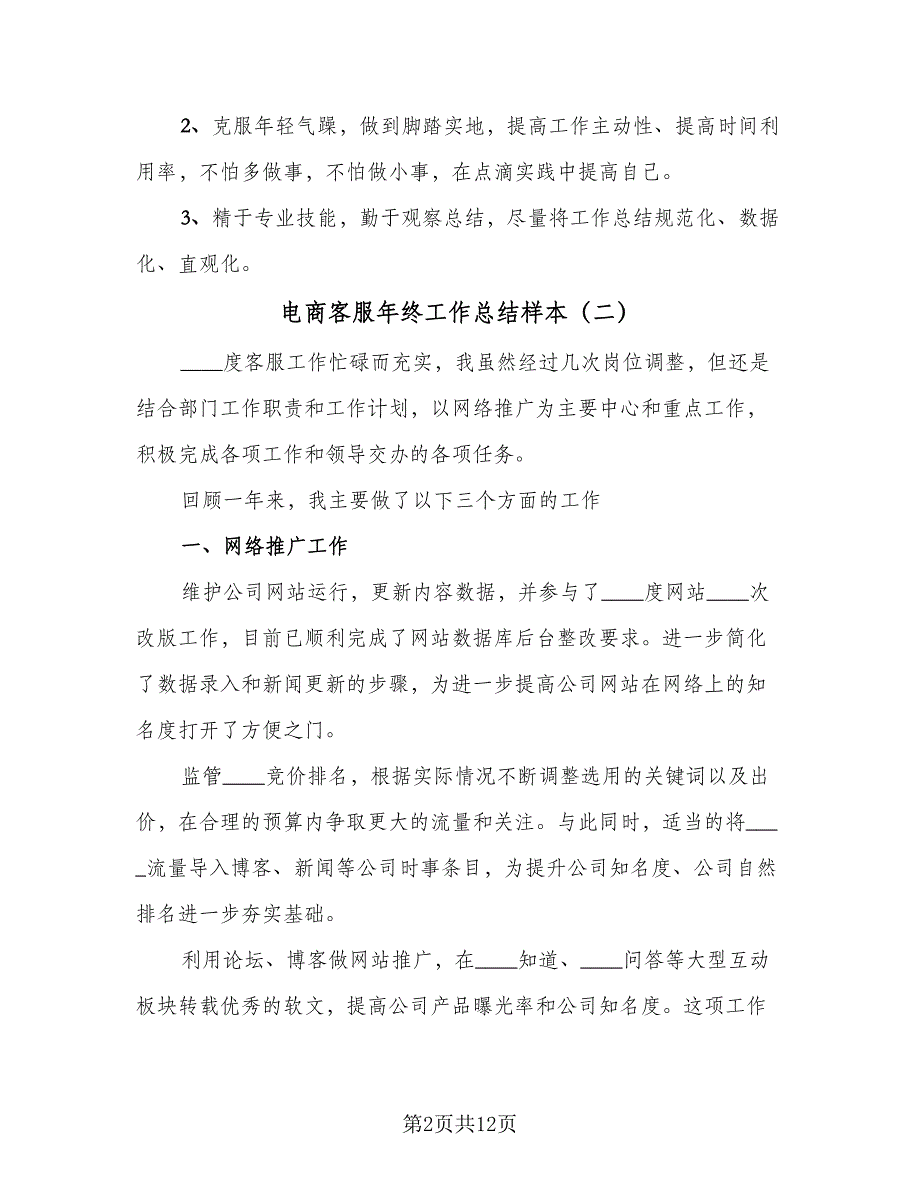 2、克服年轻气躁，做到脚踏实地，提高工作主动性、提高时间利
用率，不怕多做事，不怕做小事，在点滴实践中提高自己。
3、精于专业技能，勤于观察总结，尽量将工作总结规范化、数据
化、直观化。
电商客服年终工作总结样本（二）
____度客服工作忙碌而充实，我虽然经过几次岗位调整，但还是
结合部门工作职责和工作计划，以网络推广为主要中心和重点工作，
积极完成各项工作和领导交办的各项任务。
回顾一年来，我主要做了以下三个方面的工作
一、网络推广工作
维护公司网站运行，更新内容数据，并参与了____度网站____次
改版工作，目前已顺利完成了网站数据库后台整改要求。进一步简化
了数据录入和新闻更新的步骤，为进一步提高公司网站在网络上的知
名度打开了方便之门。
监管____竞价排名，根据实际情况不断调整选用的关键词以及出
价，在合理的预算内争取更大的流量和关注。与此同时，适当的将___
_流量导入博客、新闻等公司时事条目，为提升公司知名度、公司自然
排名进一步夯实基础。
利用论坛、博客做网站推广，在____知道、____问答等大型互动
板块转载优秀的软文，提高公司产品曝光率和公司知名度。这项工作
第2页共12页